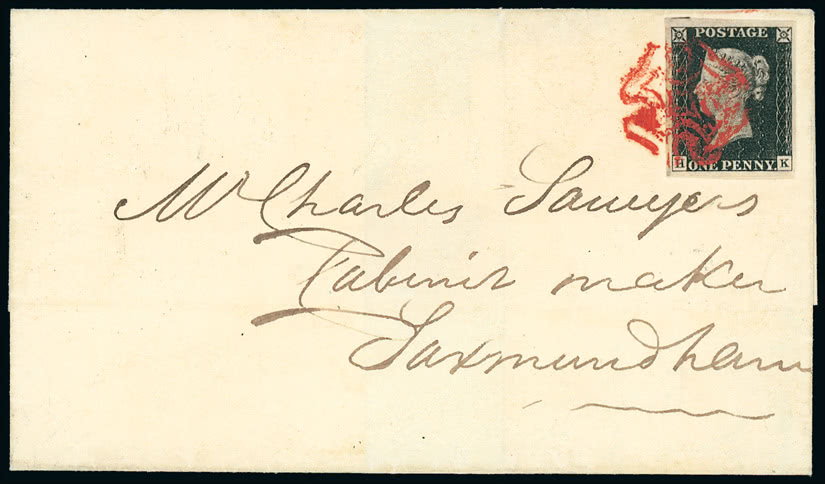 POSTAGE
H K
ONE PENNY
Mr Charles Sawyers
Cabinit maker
Saxmundham